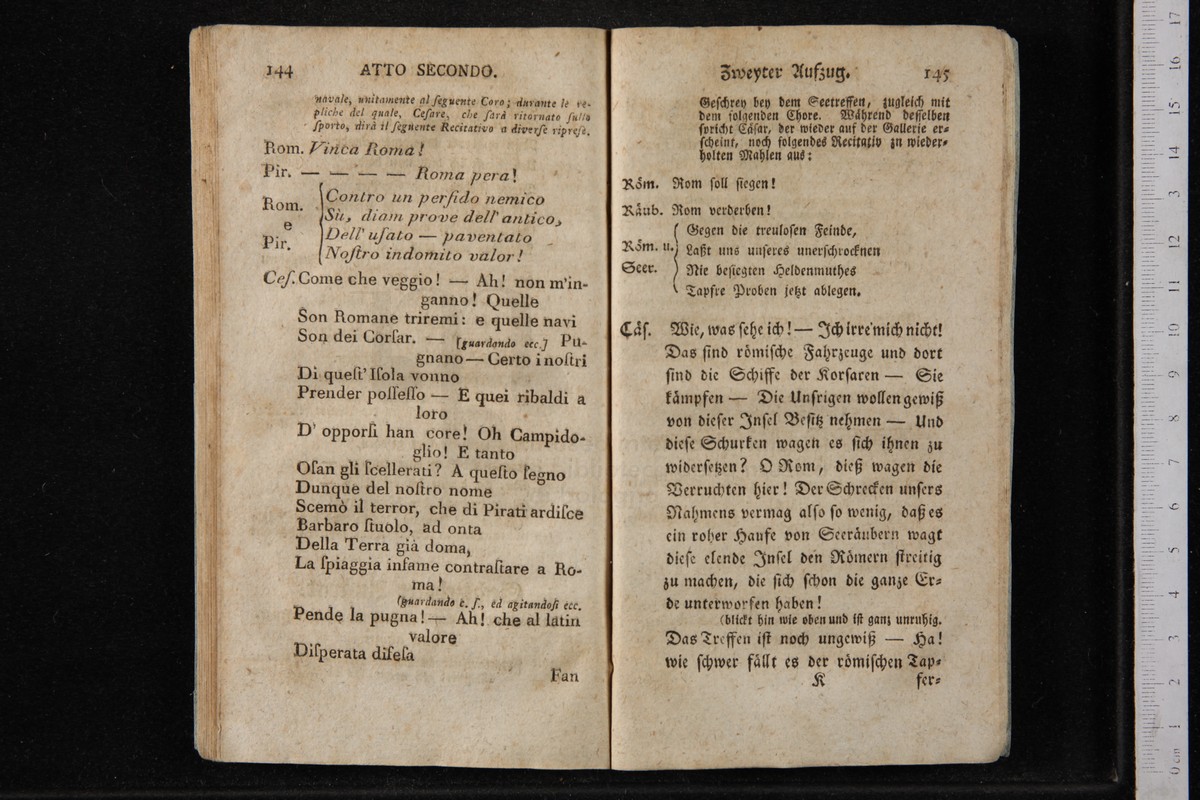 144 ATTO SECONDO.
navale, unitamente al ſeguente Coro; durante le re-
pliche del quale, Ceſare, che ſarà ritornato ſullo
ſporto, dirà il ſeguente Recitativo a diverſe ripreſe.
Rom. Vinca Roma!
Pir. — — — — Roma pera!
Rom. Contro un perfido nemico
e Sù, diam prove dell' antico,
Pir. Dell' uſato — paventato
Noſtro indomito valor!
Ceſ. Come che veggio! — Ah! non m'in-
ganno! Quelle
Son Romane triremi: e quelle navi
Son dei Corſar. — [guardando ecc.] Pu-
gnano — Certo i noſtri
Di queſt' Iſola vonno
Prender poſſeſſo — E quei ribaldi a
loro
D' opporſi han core! Oh Campido-
glio! E tanto
Oſan gli ſcellerati? A queſto ſegno
Dunque del noſtro nome
Scemò il terror, che di Pirati ardiſce
Barbaro ſtuolo, ad onta
Della Terra già doma,
La ſpiaggia infame contraſtare a Ro-
ma!
(guardando c. ſ., ed agitandoſi ecc.
Pende la pugna! — Ah! che al latin
valore
Diſperata difeſa
Fan
Zweyter Aufzug. 145
Geſchrey bey dem Seetreffen, zugleich mit
dem folgenden Chore. Während deſſelben
ſpricht Cäſar, der wieder auf der Gallerie er-
ſcheint, noch folgendes Recitativ zu wieder-
holten Mahlen aus:
Röm. Rom ſoll ſiegen!
Räub. Rom verderben!
Gegen die treuloſen Feinde,
Röm. u. Laßt uns unſeres unerſchrocknen
Seer. Nie beſiegten Heldenmuthes
Tapfre Proben jetzt ablegen.
Cäſ. Wie, was ſehe ich! — Ich irre mich nicht!
Das ſind römiſche Fahrzeuge und dort
ſind die Schiffe der Korſaren — Sie
kämpfen — Die Unſrigen wollen gewiß
von dieſer Inſel Beſitz nehmen — Und
dieſe Schurken wagen es ſich ihnen zu
widerſetzen? O Rom, dieß wagen die
Verruchten hier! Der Schrecken unſers
Nahmens vermag alſo ſo wenig, daß es
ein roher Haufe von Seeräubern wagt
dieſe elende Inſel den Römern ſtreitig
zu machen, die ſich ſchon die ganze Er-
de unterworfen haben!
(blickt hin wie oben und iſt ganz unruhig.
Das Treffen iſt noch ungewiß — Ha!
wie ſchwer fällt es der römiſchen Tap-
K fer-
0 cm 1 2 3 4 5 6 7 8 9 10 11 12 13 14 15 16 17